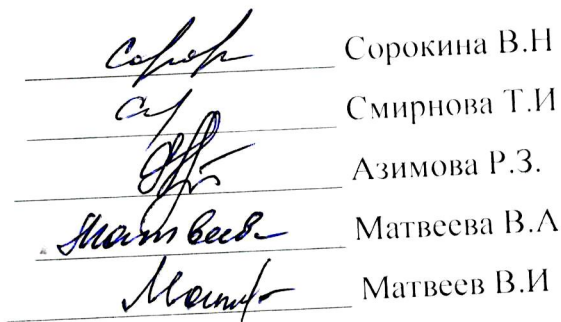 Сорокина В.Н
Смирнова Т.И
Азимова Р.З.
Матвеева Матвеева В.А
Матвеев В.И